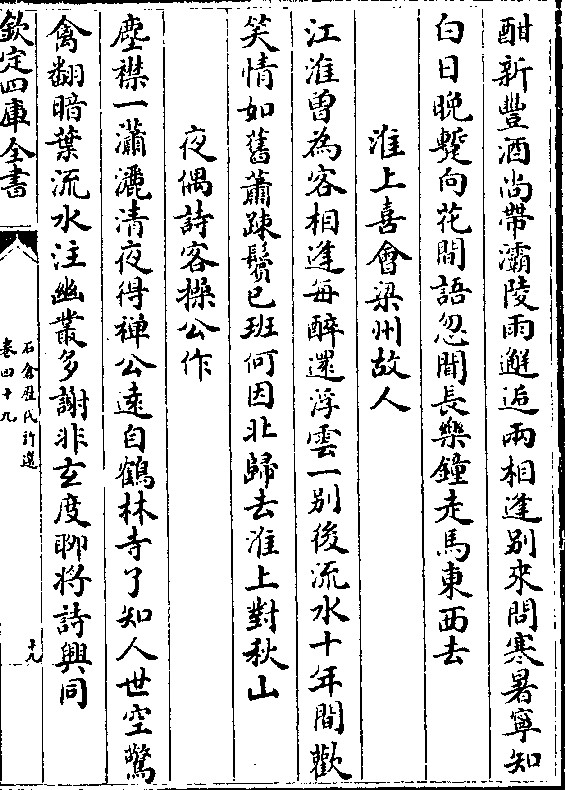 酣新豐酒尚帶灞陵雨邂逅兩相逢别來問寒暑寧知
白日晩暫向花間語忽聞長樂鐘走馬東西去
淮上喜會梁州故人
江淮曽為客相逢每醉還浮雲一别後流水十年間歡
笑情如舊蕭踈鬢已班何因北歸去淮上對秋山
夜偶詩客操公作
塵襟一瀟灑清夜得禪公遠自鶴林寺了知人世空驚
禽翻暗葉流水注幽叢多謝非玄度聊将詩興同
欽定四庫全書
石倉歴代詩選
卷四十九
十九